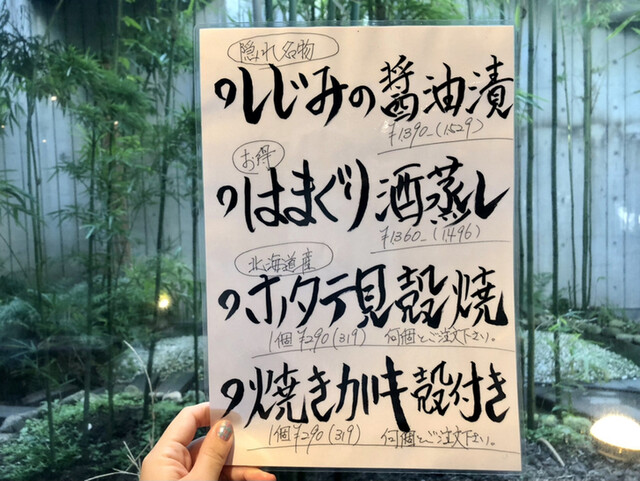 隠れ名物
しじみの醤油漬
¥1390-(1529)
お得
はまぐり酒蒸し
¥1360-(1496)
北海道産
ホタテ貝殻焼
1個 ¥290(319) 何個とご注文下さい。
焼きカキ殻付き
1個 ¥290(319) 何個とご注文下さい。